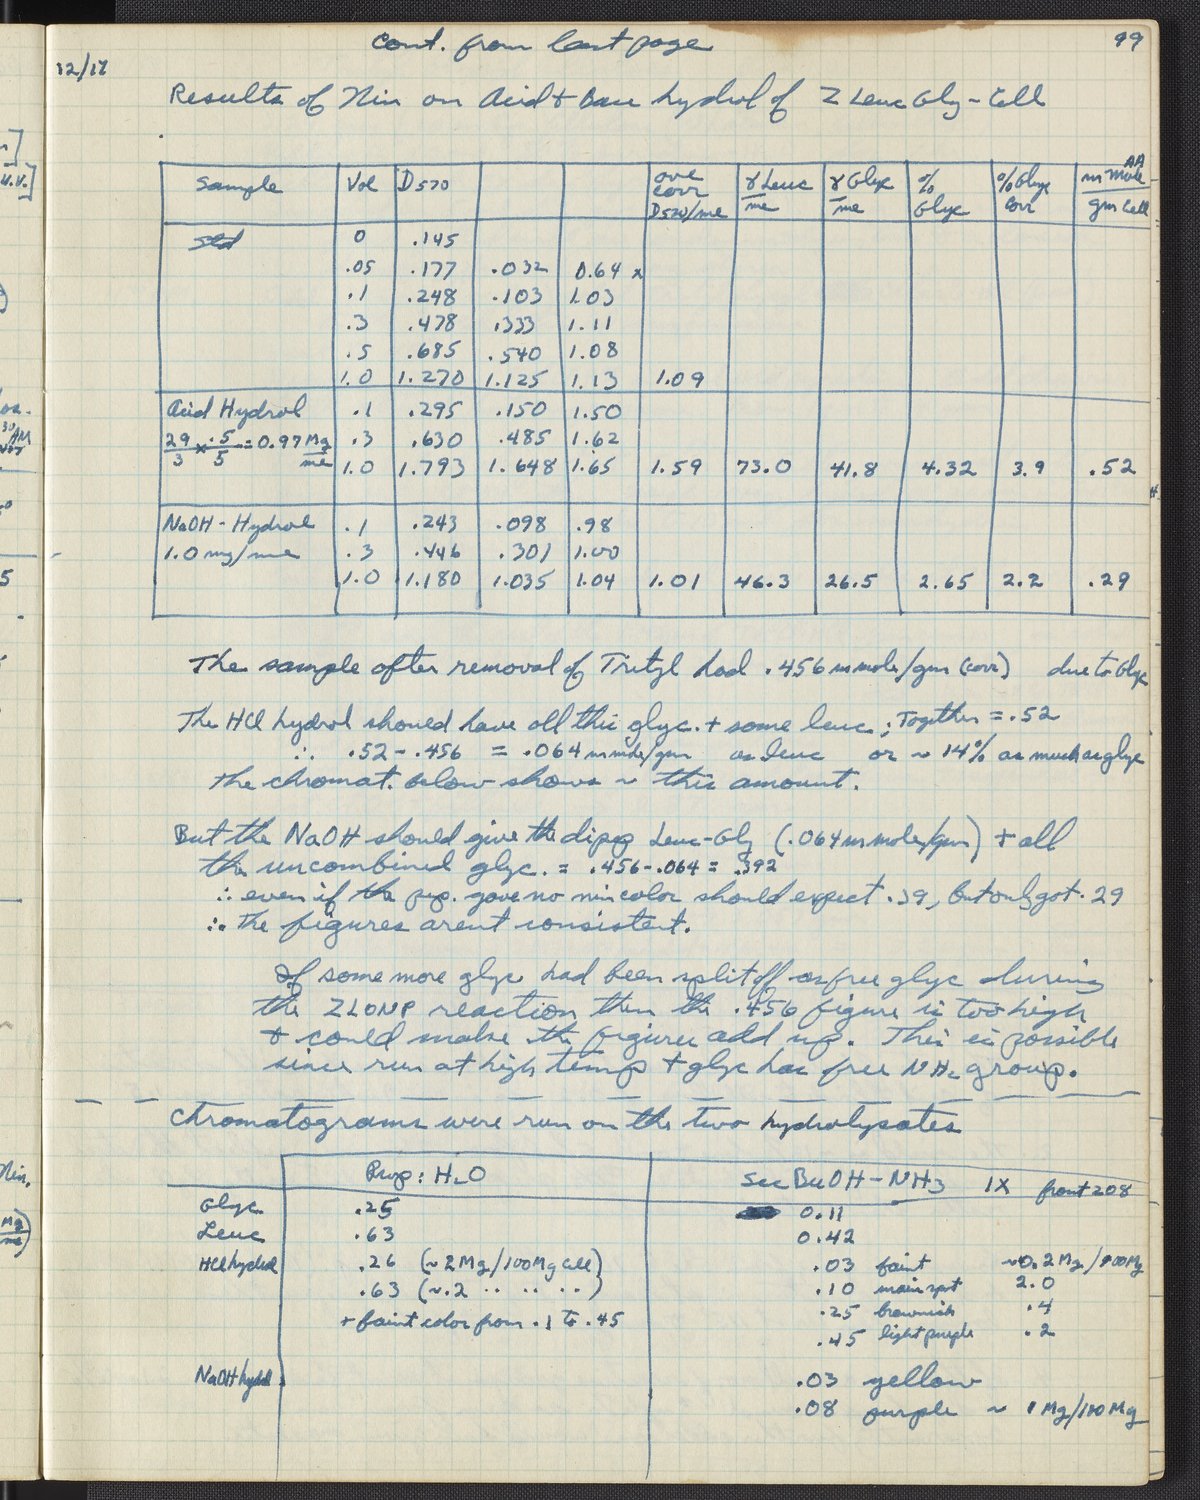 cont. from last page
99
12/17
Results of Nin on Acid + Base hydrol of Z Leuc Gly - Cell
Sample Vol D570 ave corr D570/me γ Leuc/me γ Glyc/me % Glyc % Glyc corr m mole AA/gm Cell
Std 0 .145
.05 .177 .032 0.64 x
.1 .248 .103 1.03
.3 .478 .333 1.11
.5 .685 .540 1.08
1.0 1.270 1.125 1.13 1.09
Acid Hydrol .1 .295 .150 1.50
29/3 x .5/5 = 0.97 Mg/me .3 .630 .485 1.62
1.0 1.793 1.648 1.65 1.59 73.0 41.8 4.32 3.9 .52
NaOH - Hydrol .1 .243 .098 .98
1.0 mg/me .3 .446 .301 1.00
1.0 1.180 1.035 1.04 1.01 46.3 26.5 2.65 2.2 .29
The sample after removal of Trityl had .456 m mole/gm (corr) due to Glyc
The HCl hydrol should have all this glyc. + some leuc; Together = .52
∴ .52 - .456 = .064 m mole/gm as leuc or ~ 14% as much as glyc
The chromat. below shows ~ this amount.
But the NaOH should give the dipep Leuc-Gly (.064 m mole/gm) + all
the uncombined glyc. = .456 - .064 = .392
∴ even if the pep. gave no nin color should expect .39, but only got .29
∴ The figures arent consistent.
If some more glyc had been split off as free glyc during
the ZLONP reaction then the .456 figure is too high
+ could make the figures add up. This is possible
since run at high temp + glyc has free NH2 group.
Chromatograms were run on the two hydrolysates
Prop: H2O sec BuOH - NH3 1X front 208
Glyc .25 0.11
Leuc .63 0.42
HCl hydrol .26 (~2 Mg/100 Mg Cell) .03 faint ~0.2 Mg/100 Mg
.63 (~.2 .. .. ..) .10 main spot 2.0
+ faint color from .1 to .45 .25 brownish .4
.45 light purple .2
NaOH hydrol .03 yellow
.08 purple ~ 1 Mg/100 Mg